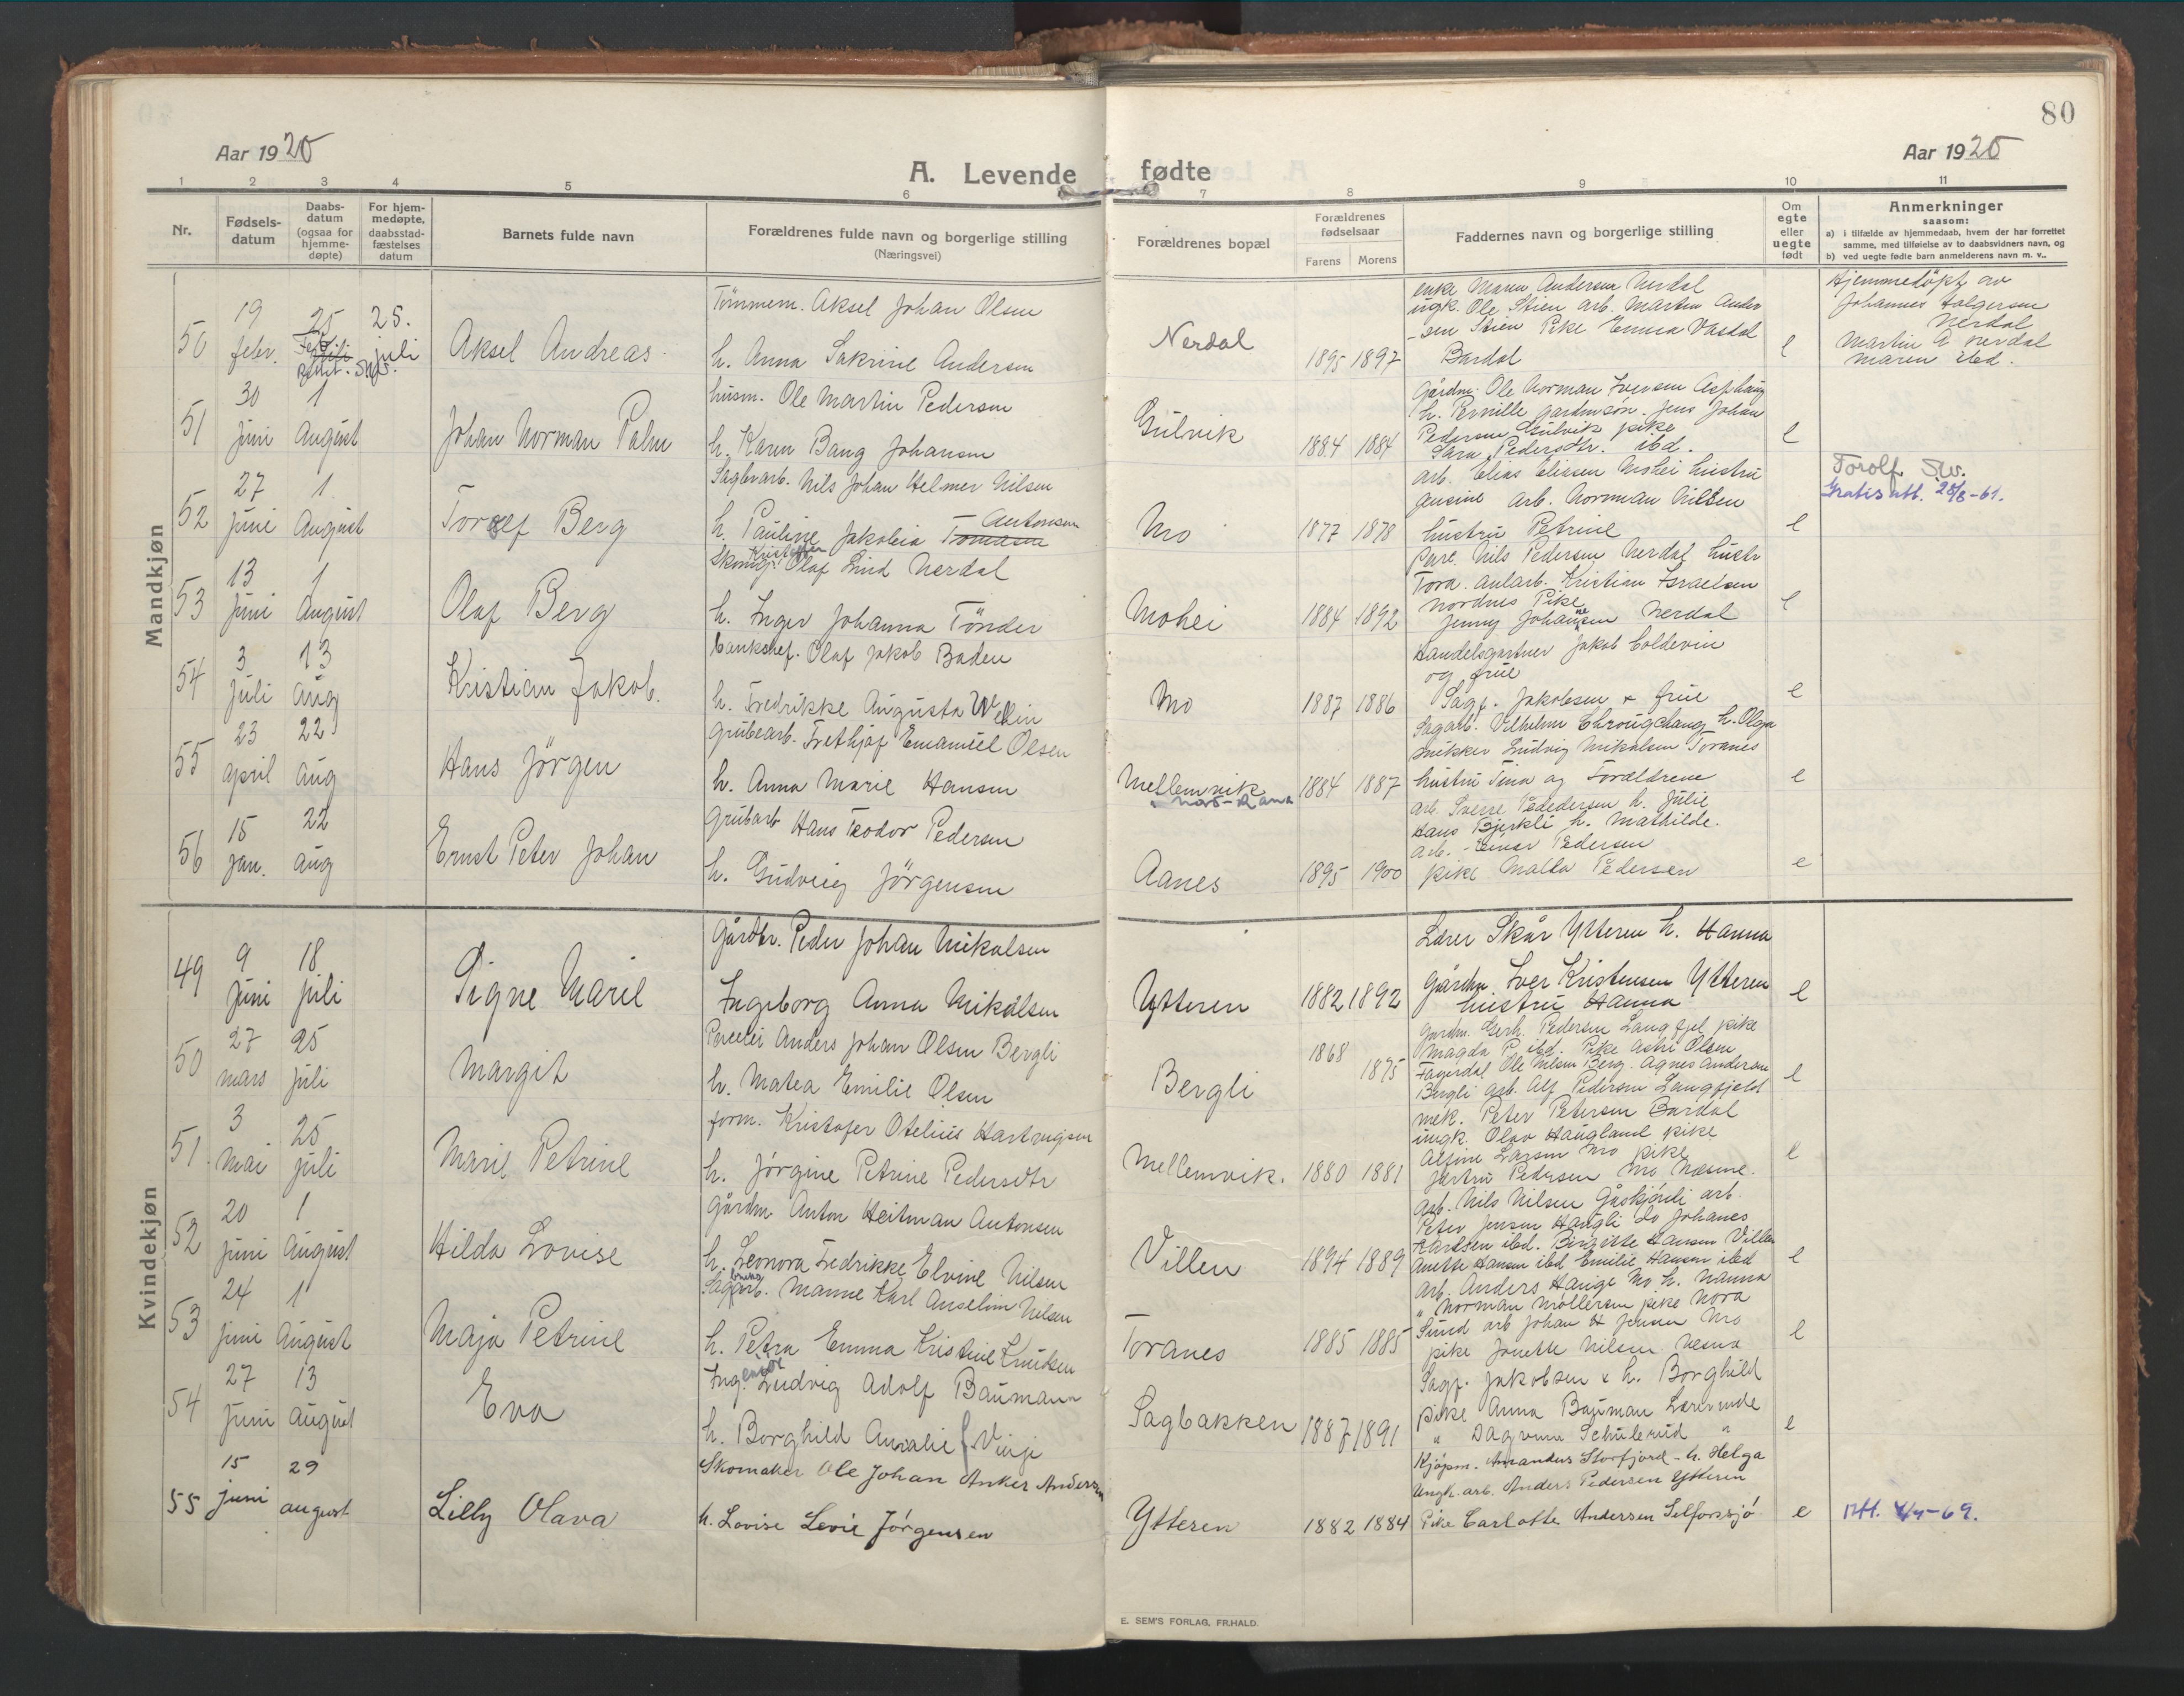 80
Aar 1920
Aar 1920
A. Levende fødte
1 2 3 4 5 6 7 8 9 10 11
Nr.
Fødselsdatum
Daabsdatum (ogsaa for hjemmedøpte)
For hjemmedøpte, daabsstadfæstelses datum
Barnets fulde navn
Forældrenes fulde navn og borgerlige stilling
(Næringsvei)
Forældrenes bopæl
Forældrenes fødselsaar
Farens Morens
Faddernes navn og borgerlige stilling
Om egte eller uegte født
Anmerkninger
saasom:
a) i tilfælde av hjemmedaab, hvem der har forrettet
samme, med tilføielse av to daabsvidners navn, og
b) ved uegte fødte barn anmelderens navn m. v..
Mandkjøn
50
19 febr.
25
25. juli
Aksel Andreas
Tømmerm. Aksel Johan Olsen
h. Anna Sakrine Andersen
Nerdal
1895 1897
enke Maren Andersen Nerdal
ungk. Ole Stien arb. Martin Ander
sen Stien Pike Emma Vasdal
Bardal
e
Hjemmedöpt av
Johannes Holgersen
Nerdal
Martin A Nerdal
Maren ibd.
51
30 juni
1 August
Johan Norman Palm
husm. Ole Martin Pedersen
h. Karen Bang Johansen
Gulvik
1884 1884
Gårdm. Ole Norman Iversen Asphaug
h. Pernille gardmsøn. Jens Johan
Pedersen Gulvik pike
Sara Pedersdtr. ibd.
e
52
27 juni
1 August
Berg
Sagbrarb. Nils Johan Helmer Nilsen
h. Pauline Jakobia Tomasen Antonsen
Mo
1877 1878
arb. Elias Eliesen Mohei hustru
Jensine arb. Norman Nilsen
hustru Petrine
e
Torolf Slv.
Gratis att. 28/8-61.
53
13 juni
1 August
Olaf Berg
Olaf Lind Nerdal
h. Inger Johanna Tönder
Mohei
1884 1892
Parc. Nils Pedersen Nerdal hustr
Tora. anlarb. Kristian Israelsen
Nordnes Pike
Jenny Johansen Nerdal
e
54
3 juli
13 aug
Kristian Jakob.
Bankchef. Olaf Jakob Baden
h. Fredrikke Augusta Wellin
Mo
1887 1886
Handelsgartner Jakob Coldevin
og frue
Sagf. Jakobsen & frue
e
55
23 april
22 aug
Hans Jörgen
Grubearb. Frethjof Emanuel Olsen
h. Anna Marie Hansen
Mellemvik
Nord-Rana
1884 1887
Sagarb. Vilhelm h. Olga
snikker Ludvig Mikalsen Toranes
hustru Tina og Forældrene
e
56
15 jan.
22 aug
Ernst Peter Johan
Grubarb Hans Teodor Pedersen
h. Gudveig Jörgensen
Aanes
1895 1900
arb. Sverre Pededersen h. Julie
Hans Bjerkli h. Mathilde.
arb. Einar Pedersen
pike Malla Pedersen
e
Kvindekjøn
49
9 juni
18 juli
Signe Marie
Gårdbr. Peder Johan Mikalsen
Ingeborg Anna Mikalsen
Ytteren
1882 1892
Lærer Skår Ytteren h. Hanna
Gårdm. Iver Kristensen Ytteren
hustru Hanna
e
50
27 mars
25 juli
Margit
Anders Johan Olsen Bergli
h. Matea Emilie Olsen
Bergli
1868 1875
Gardm. Gerh. Pedersen Langfjel pike
Magda P. ibd. Pike Olsen
Fagerdal Ole Nilsen Berg. Agnes Andersen
Bergli arb. Alf Pedersen Langfjeld
e
51.
3 mai
25 juli
Marie Petrine
form. Kristofer Otelius Hartvigsen
h. Jörgine Petrine Pedersdtr
Mellemvik.
1880 1881
mek. Peter Petersen Bardal
ungk. Olav Haugland pike
Alfine Larsen Mo pike
Pedersen Mo
e
52
20 juni
1 August
Hilda Lovise
Gårdm Anton Heitman Antonsen
h. Leonora Fredrikke Elvine Nilsen
Villen
1894 1889
arb. Nils Nilsen arb.
Peter Jensen Haugli do Johanes
Karlsen ibd. Birgitte Hansen Villen
Anette Hansen ibd Emilie Hansen ibd
e
53
24 juni
1 August
Maja Petrine
Manne Karl Anselim Nilsen
h. Petra Emma Kristine Knudsen
Toranes
1885 1885
arb. Anders Hauge Mo h. Nanna
" Norman Möllersen pike Nora
Sund arb Johan H Jensen Mo
pike Jonette Nilsen Nesna
e
54
27 Juni
13 August
Eva
Ingeniør Ludvig Adolf Baumann
h. Borghild Amalie Vinje
Sagbakken
1887 1891
Sagf. Jakobsen & h. Borghild
pike Anna Bauman Lærerinde
" Dagrun Schulerud "
e
55
15 juni
29 august
Lilly Olava
Skomaker Ole Johan Anker Andersen
h. Lovise Levie Jörgensen
Ytteren
1882 1884
Kjöpm. Amandus Storfjord - h. Helga
Ungk. arb. Anders Pedersen Ytteren
Pike Carlotte Andersen Selforssjö
e
Att. 4/4-69.
E. SEM'S FORLAG, FR.HALD.